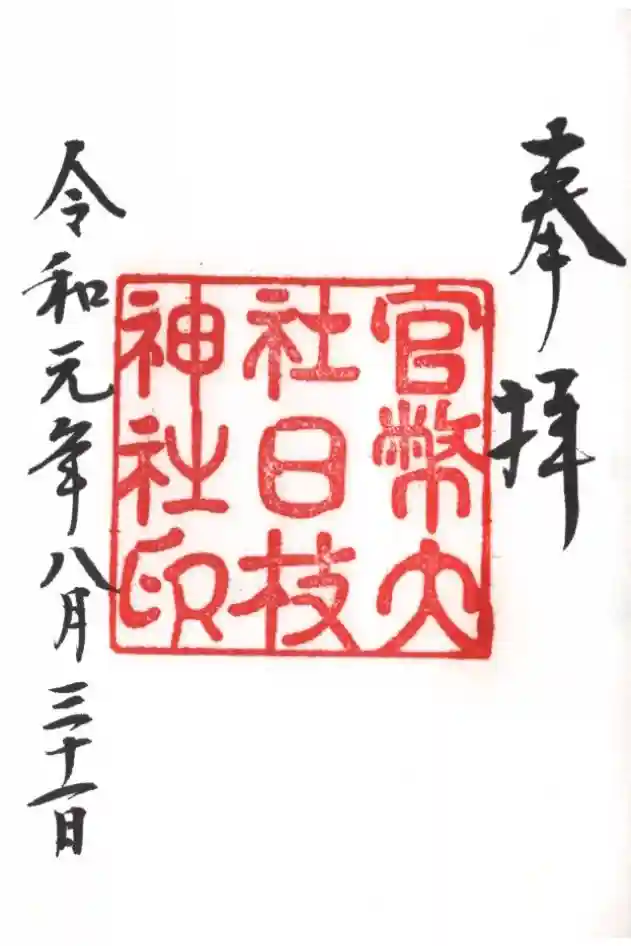 奉拝
官幣大
社日枝
神社印
令和元年八月三十一日